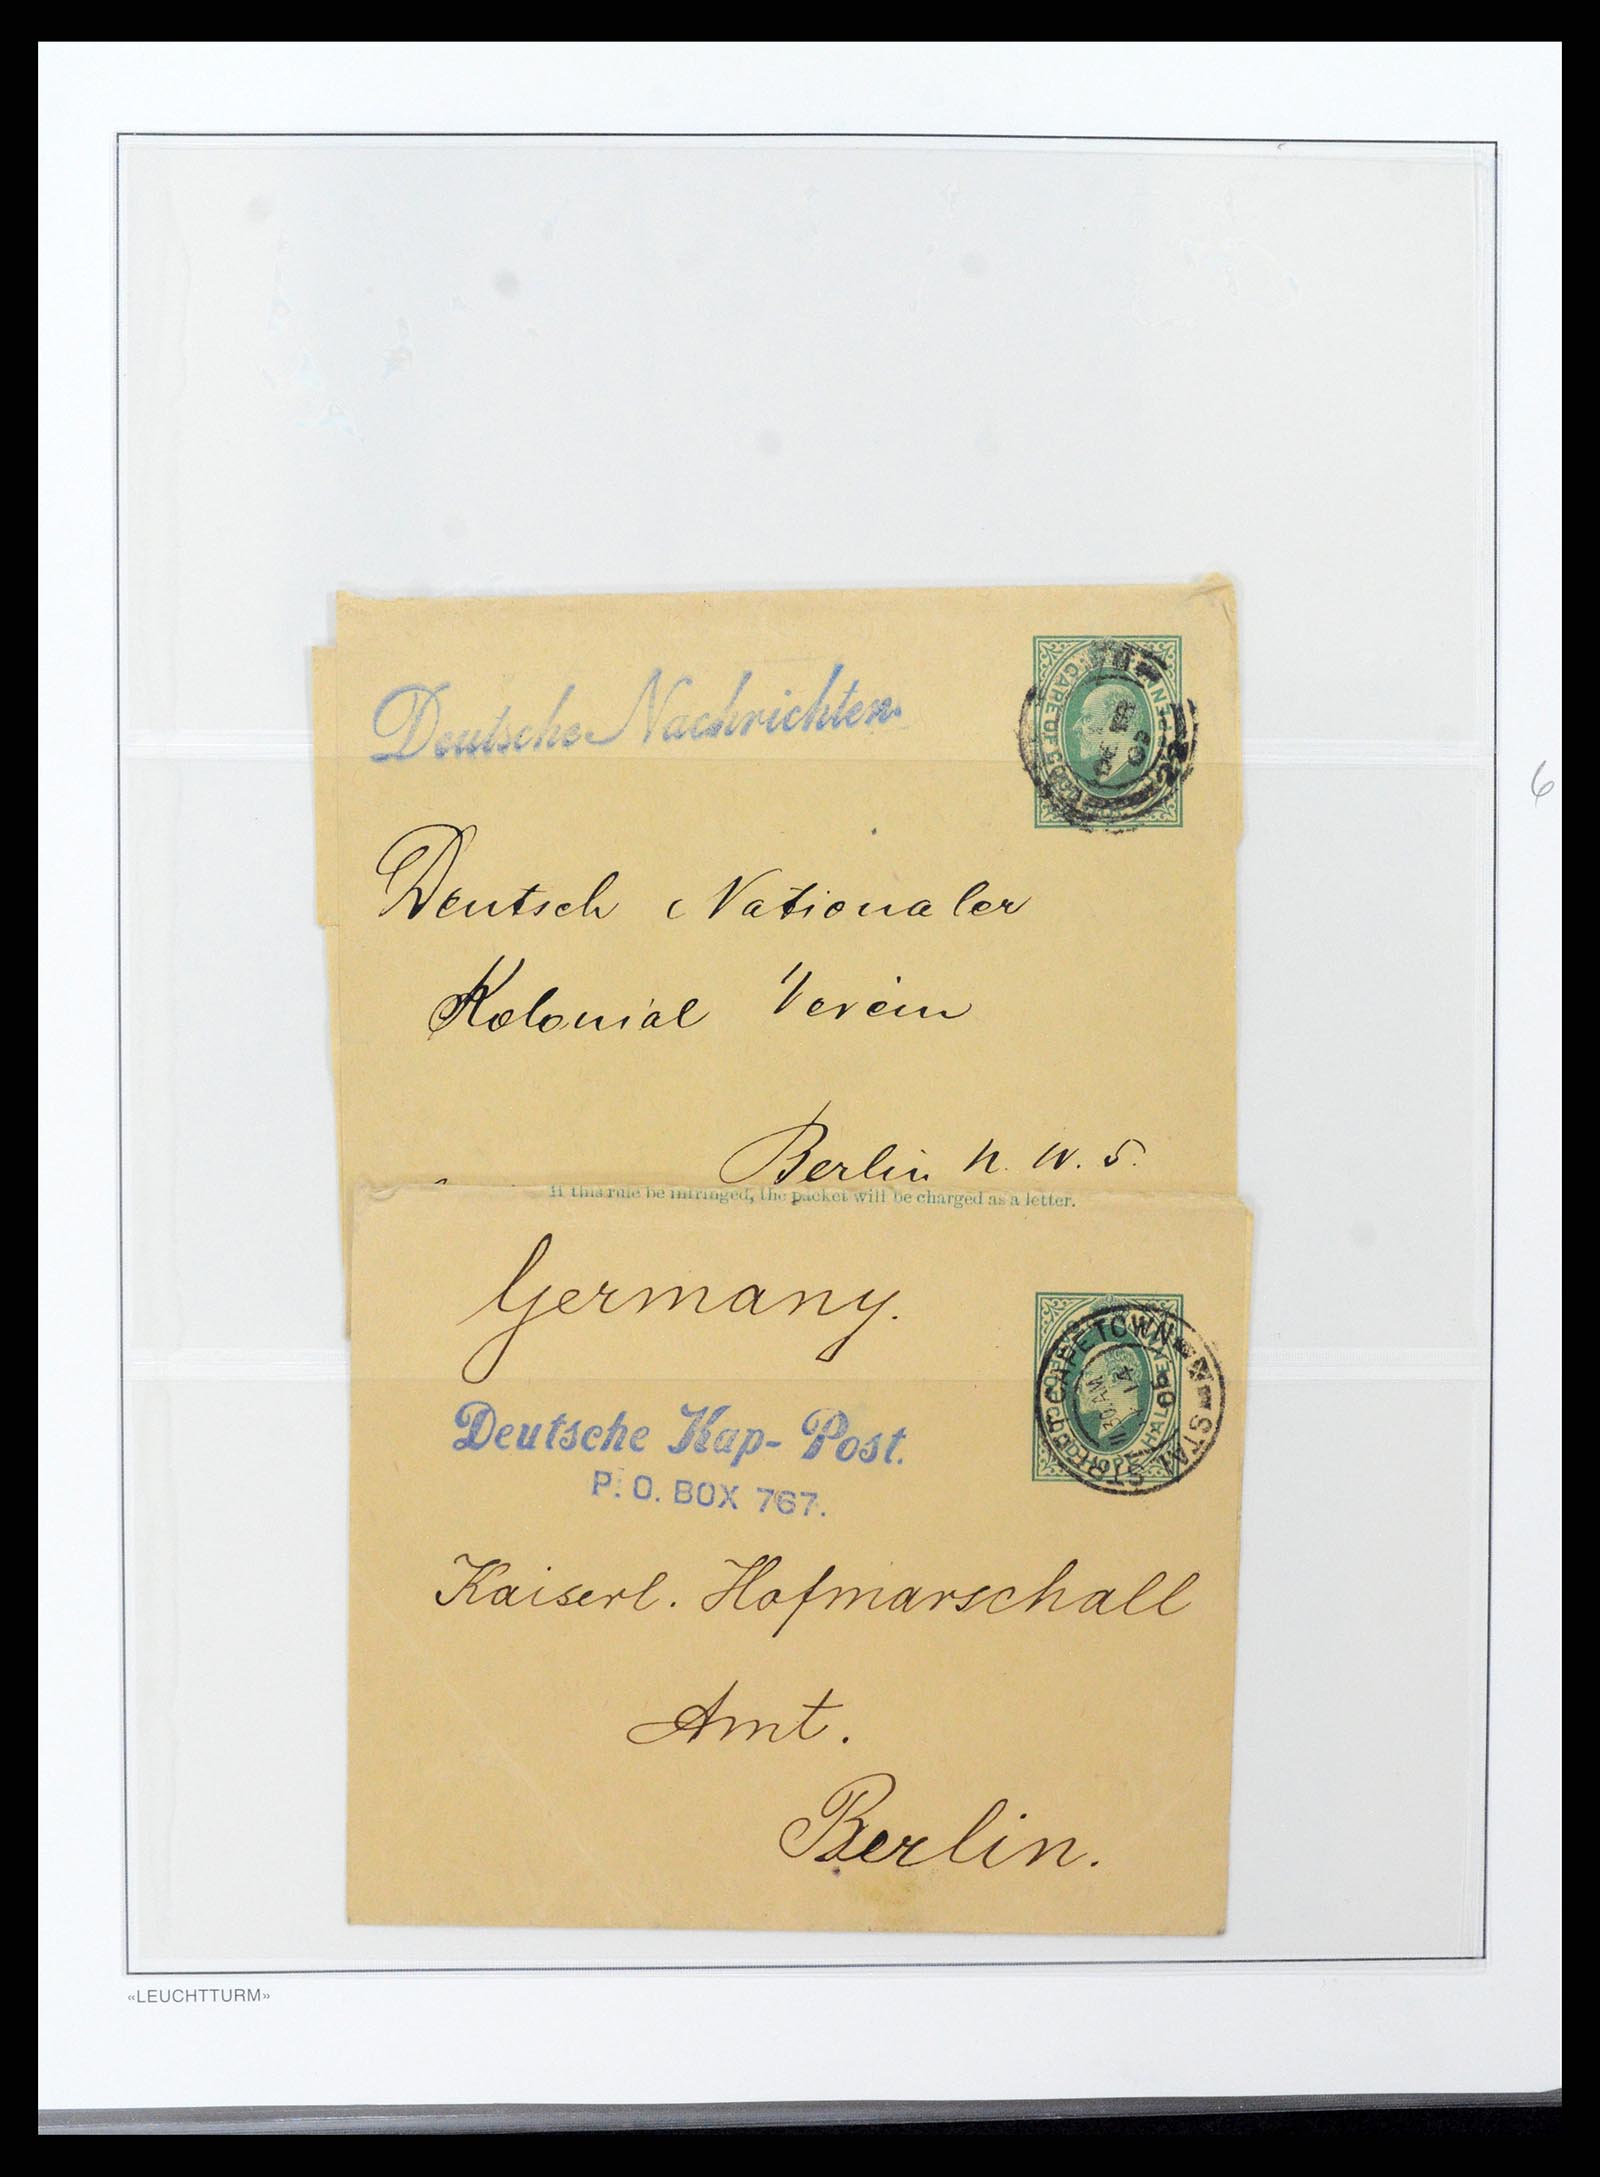 Deutsche Nachrichten.
CAPE OF
22
Deutsch Nationaler
Kolonial Verein
6
Berlin N. W. 5.
If this rule be infringed, the packet will be charged as a letter.
Germany.
CAPETOWN
Deutsche Kap-Post.
P. O. BOX 767.
Kaiserl. Hofmarschall
Amt.
Berlin.
«LEUCHTTURM»